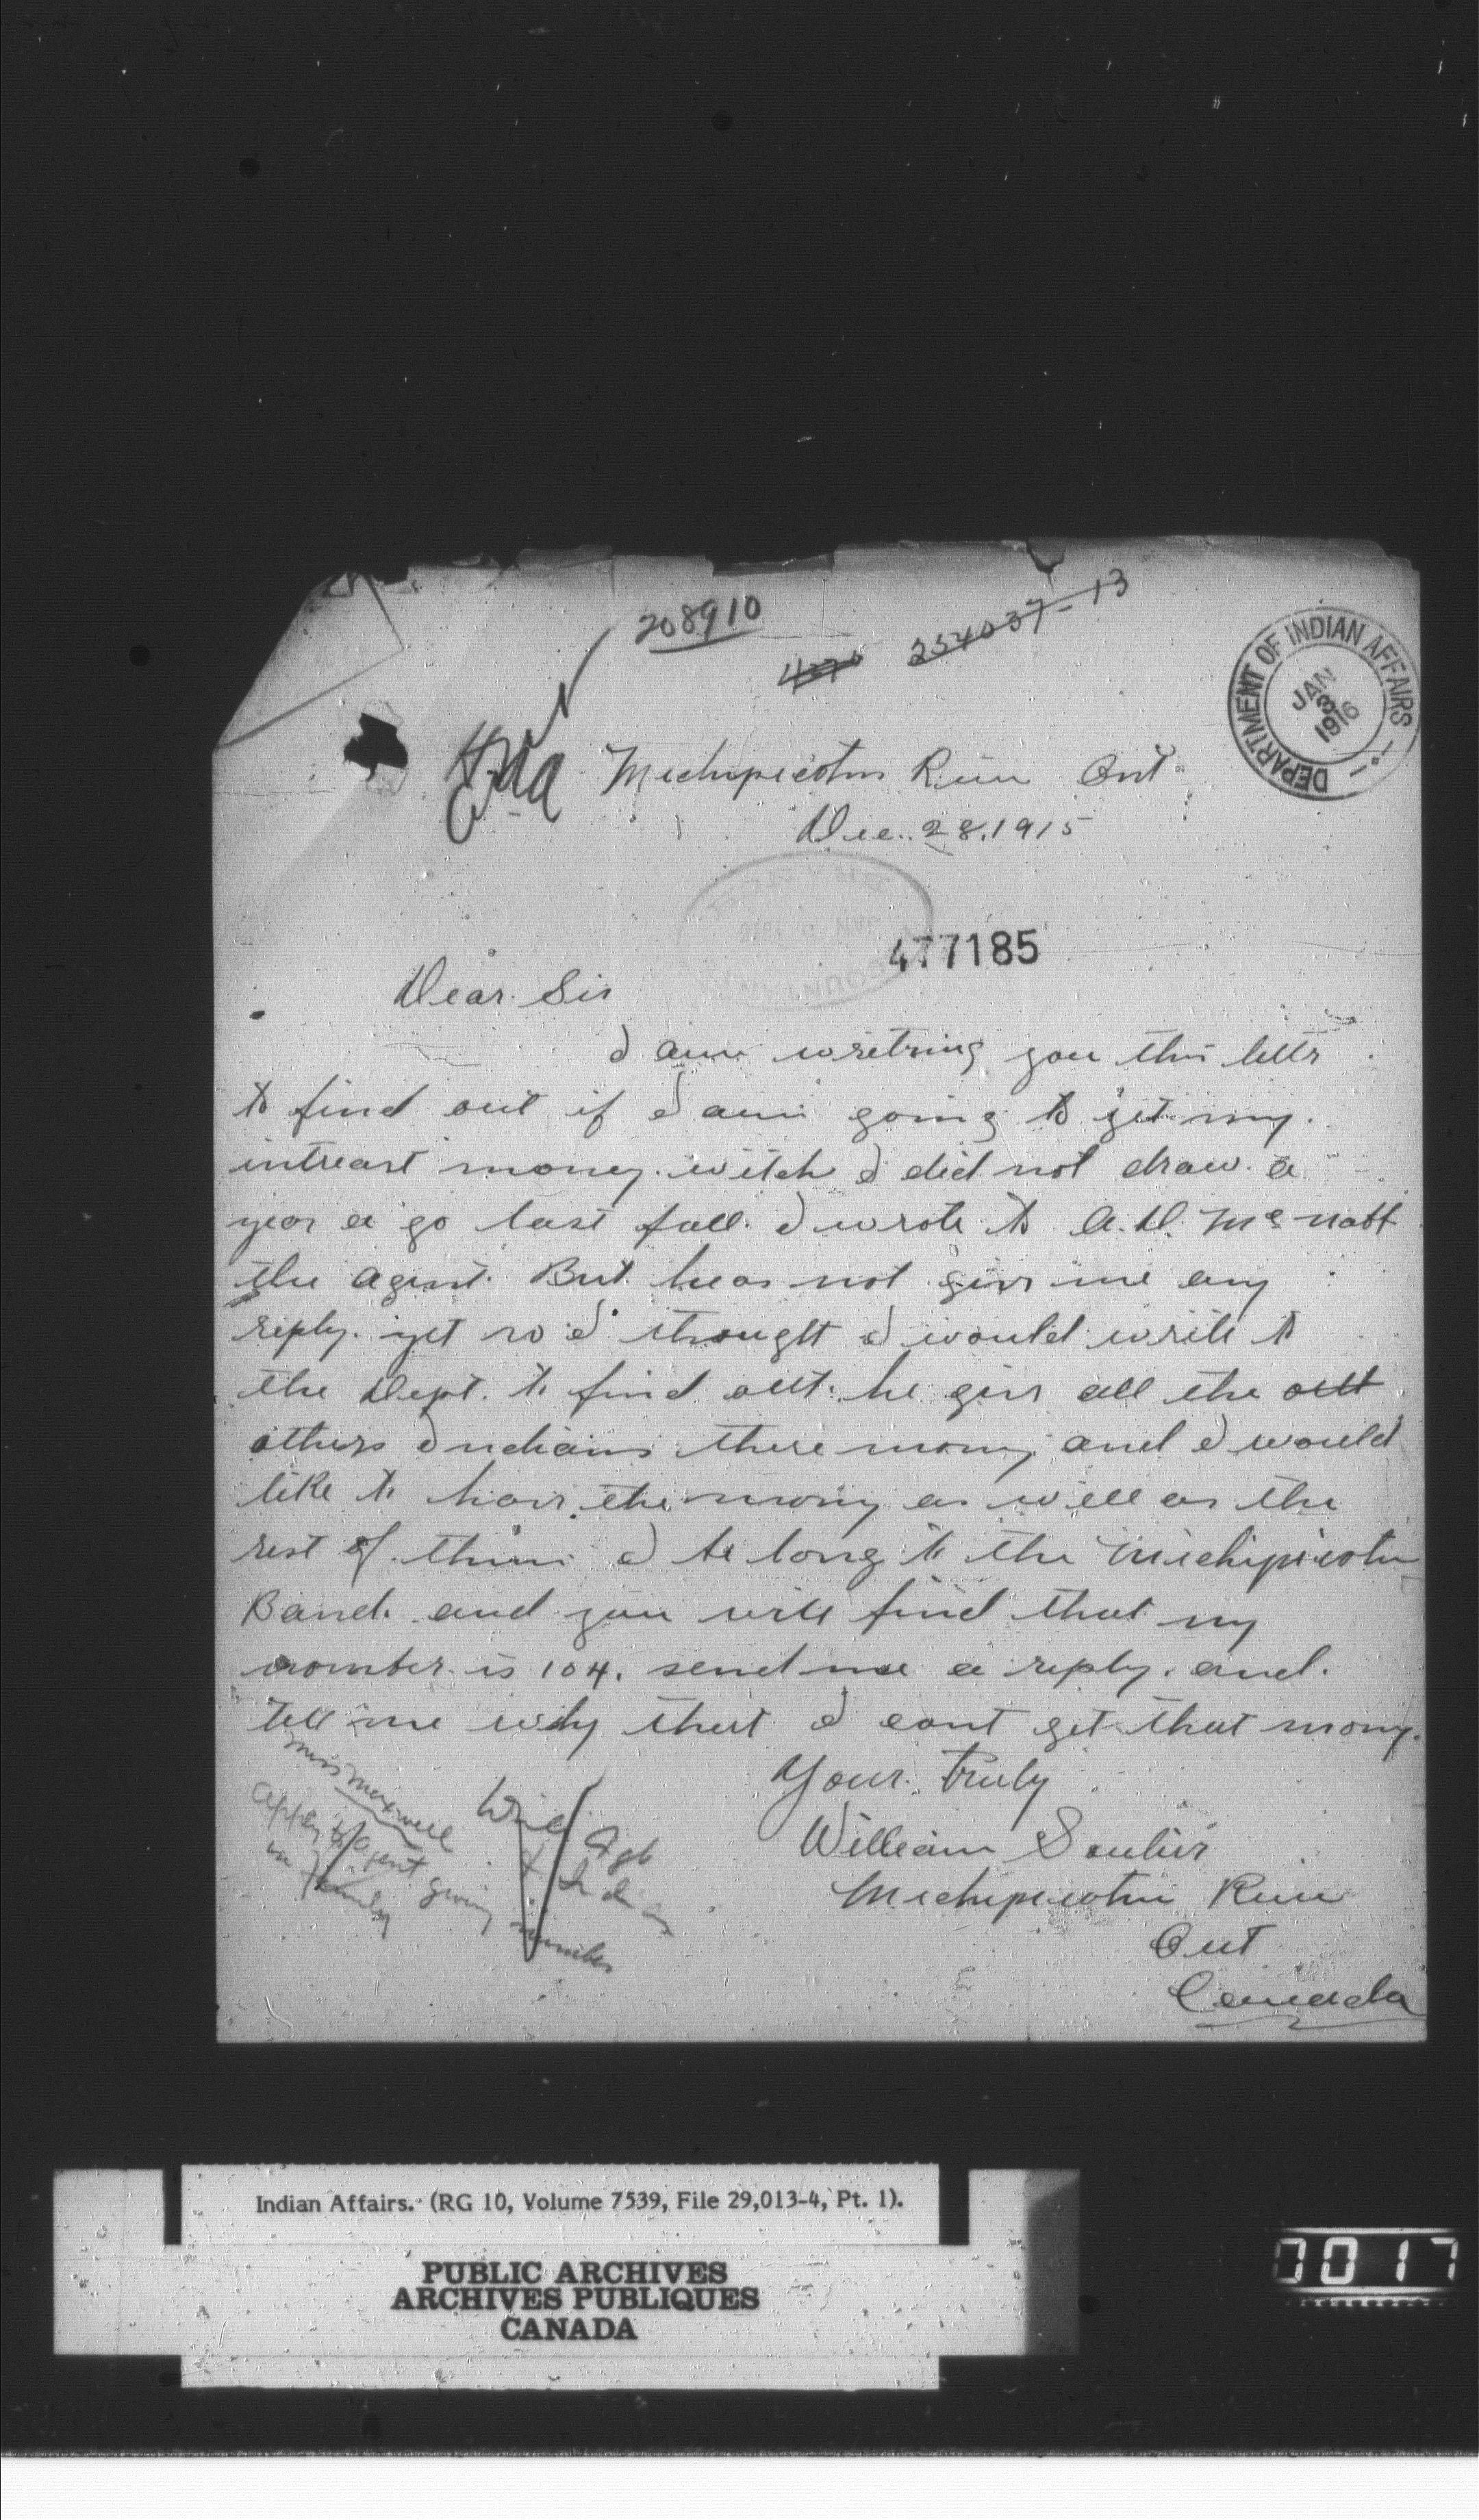 208910
254037-13
DEPARTMENT OF INDIAN AFFAIRS
JAN
3
1916
Michipicoten River Ont
Dec. 28. 1915
477185
Dear Sir
I am writring you this letter
to find out if I am going to get my
intreast money. witch I did not draw a
year a go last fall. I wrote to A.D. McNabb
the agent. But heas not give me any
reply. yet so I thought I would write to
the Dept. to find out. he give all the out
others Indians there mony and I would
like to have the mony as well as the
rest of them I be long to the Michipicoten
Band. and you will find that my
nomber is 104. send me a reply. and.
Tell me why that I cant get that mony.
Your Truly
William Soulier
Michipicoten River
Ont
Canada
Miss Maxwell
apply to Agent giving number
in family
Write Agt
& Indian
Indian Affairs. (RG 10, Volume 7539, File 29,013-4, Pt. 1).
PUBLIC ARCHIVES
ARCHIVES PUBLIQUES
CANADA
0017